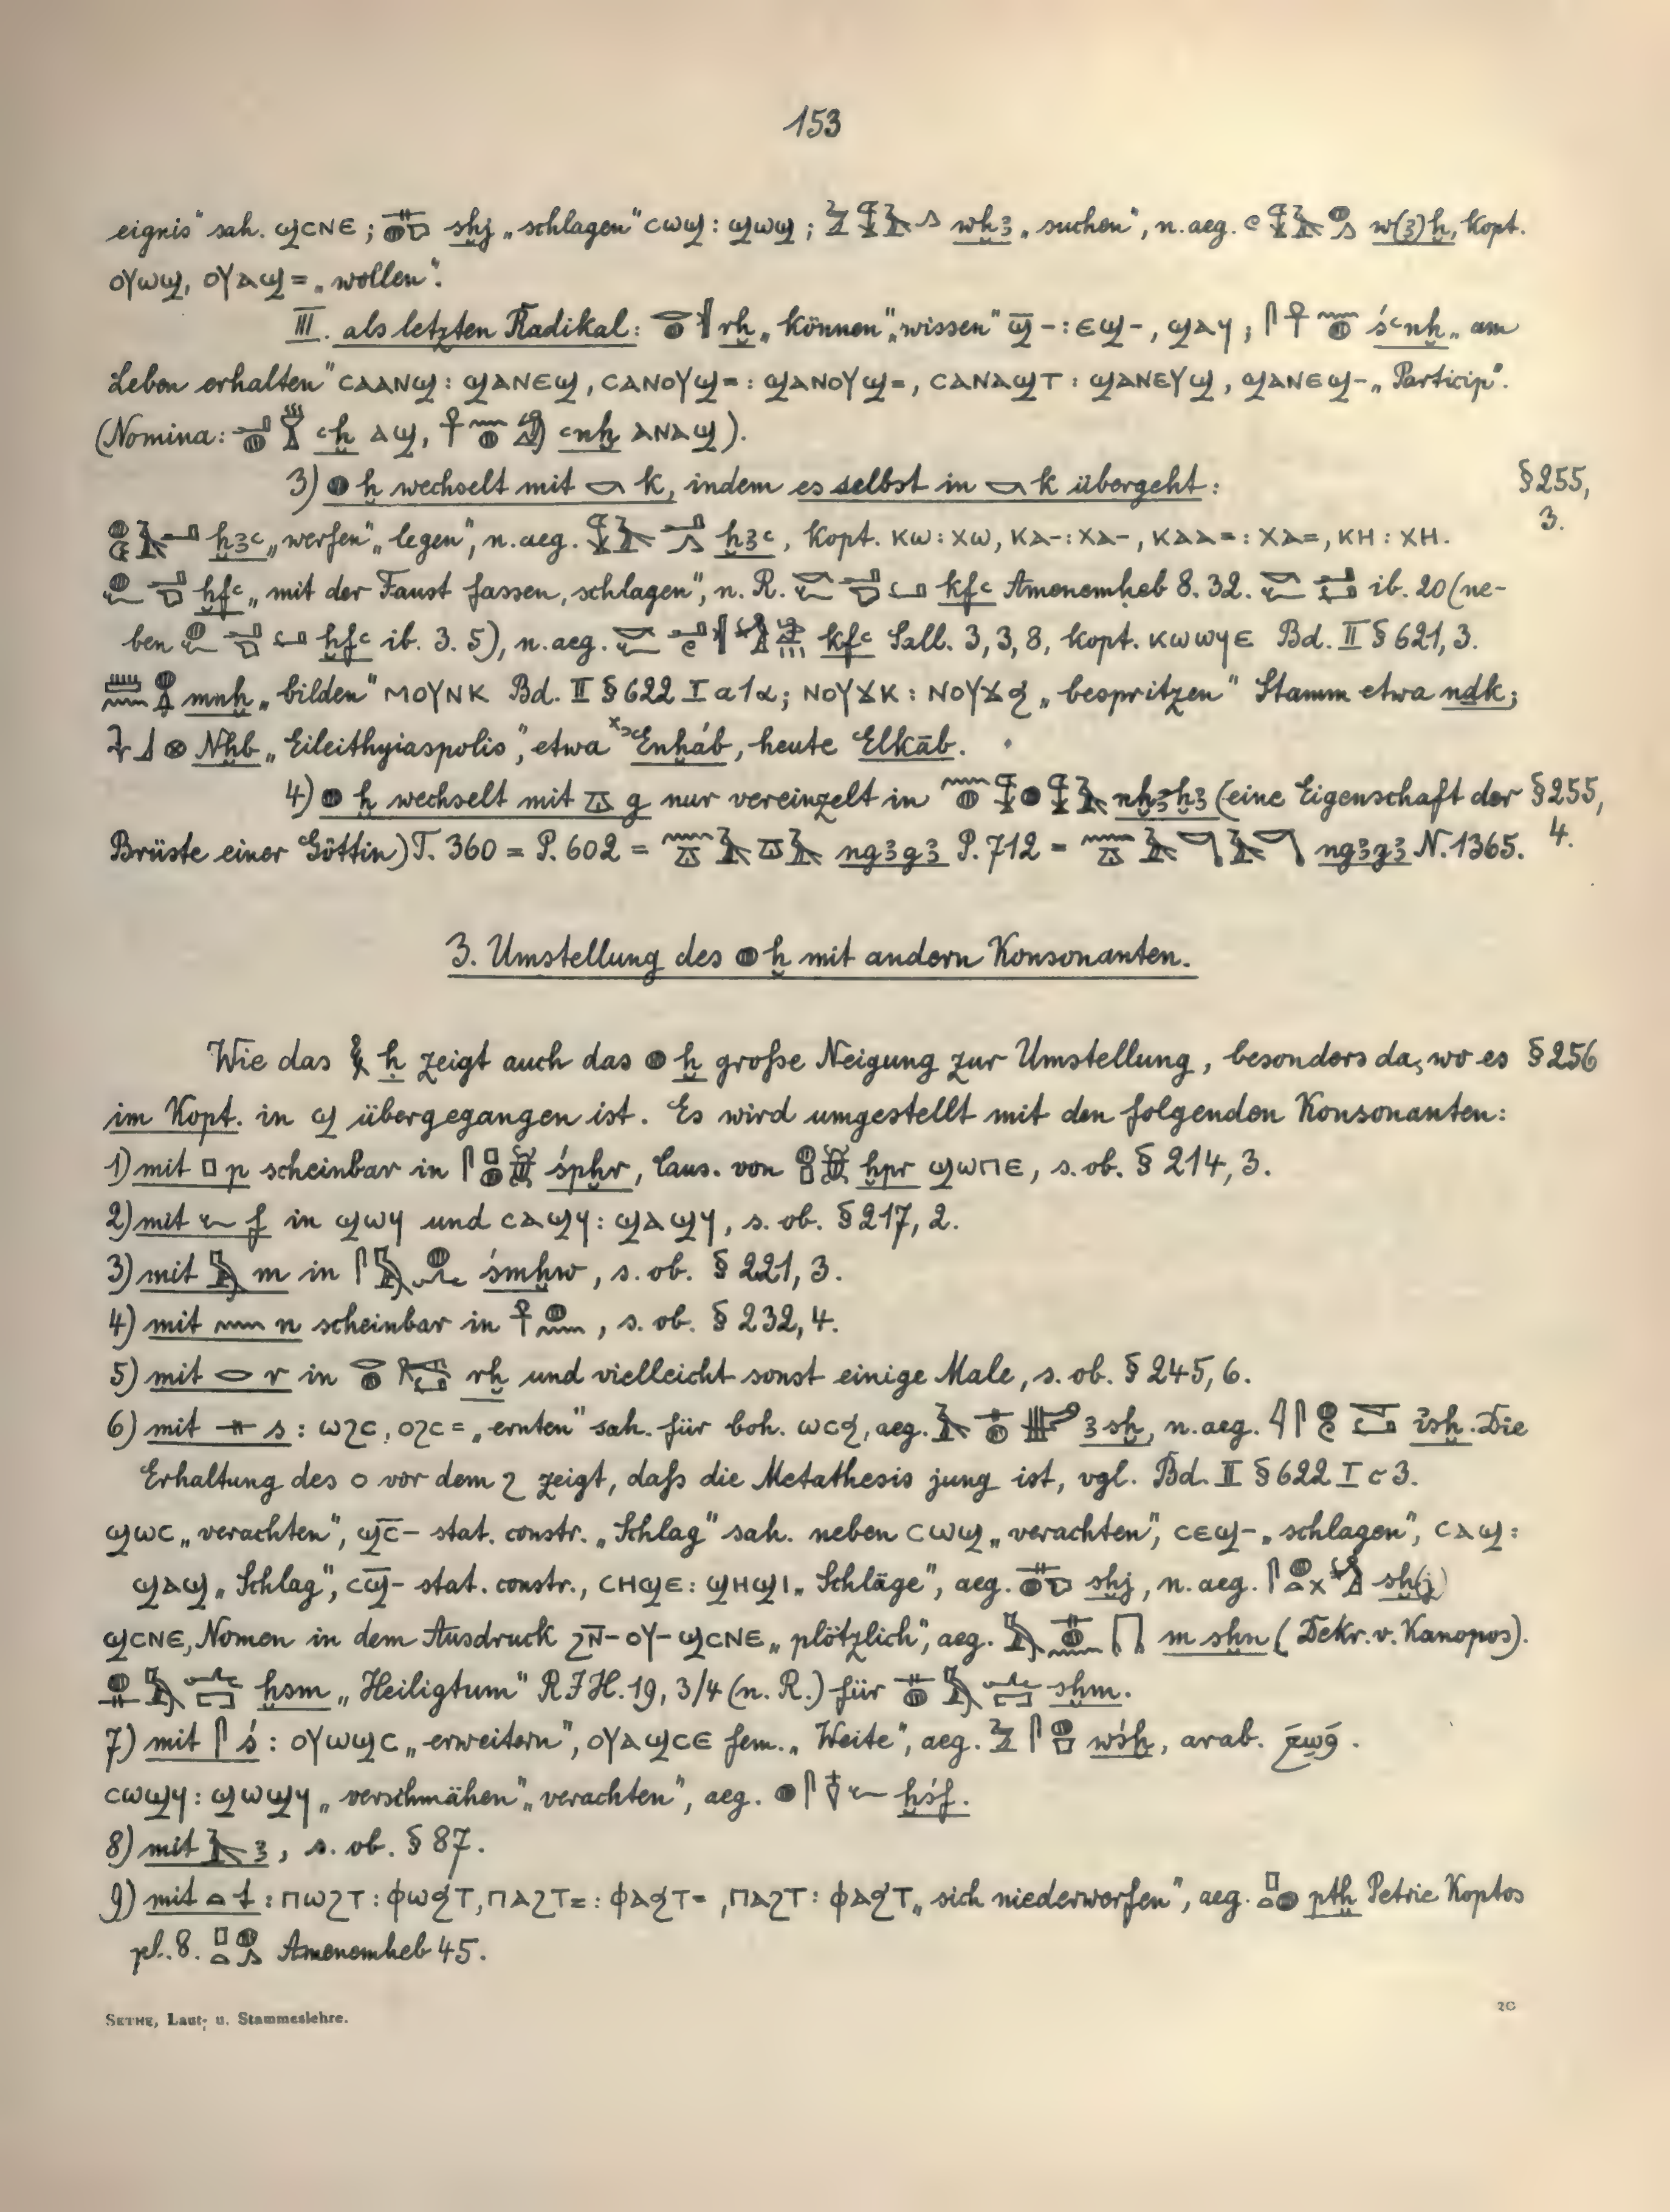 153
eignis" sah. ϣⲥⲛⲉ; 𓋴𓐍 sḫj „schlagen" ⲥⲱϣ: ϣⲱϣ; wḫꜣ „suchen", n. aeg. w(ꜣ)ḫ, kopt.
ⲟⲩⲱϣ, ⲟⲩⲁϣ= „wollen".
III. als letzten Radikal: 𓂋𓐍 rḫ „können" „wissen" ϣ̄-: ⲉϣ-, ϣⲁϥ; 𓋴𓋹𓈖𓐍 śꜥnḫ „am
Leben erhalten" ⲥⲁⲁⲛϣ: ϣⲁⲛⲉϣ, ⲥⲁⲛⲟⲩϣ=: ϣⲁⲛⲟⲩϣ=, ⲥⲁⲛⲁϣⲧ: ϣⲁⲛⲉⲩϣ, ϣⲁⲛⲉϣ- „Particip".
(Nomina: ꜥḫ ⲁϣ, 𓋹𓈖𓐍 ꜥnḫ ⲁⲛⲁϣ).
3) 𓐍 ḫ wechselt mit 𓎡 k, indem es selbst in 𓎡 k übergeht: §255,
3.
ḫꜣꜥ „werfen" „legen", n. aeg. ḫꜣꜥ, kopt. ⲕⲱ: ⲭⲱ, ⲕⲁ-: ⲭⲁ-, ⲕⲁⲁ=: ⲭⲁ=, ⲕⲏ: ⲭⲏ.
ḫfꜥ „mit der Faust fassen, schlagen", n. R. kfꜥ Amenemḥeb 8. 32. ib. 20 (ne-
ben ḫfꜥ ib. 3. 5), n. aeg. kfꜥ Sall. 3, 3, 8, kopt. ⲕⲱⲱϥⲉ Bd. II § 621, 3.
mnḫ „bilden" ⲙⲟⲩⲛⲕ Bd. II § 622 I a 1 α; ⲛⲟⲩϫⲕ: ⲛⲟⲩϫϧ „bespritzen" Stamm etwa ndk;
Nḫb „Eileithyiaspolis", etwa Enḫáb, heute Elkāb.
4) 𓐍 ḫ wechselt mit 𓎼 g nur vereinzelt in nḫꜣḫꜣ (eine Eigenschaft der §255,
Brüste einer Göttin) T. 360 = P. 602 = ngꜣgꜣ P. 712 = ngꜣgꜣ N. 1365. 4.
3. Umstellung des 𓐍 ḫ mit andern Konsonanten.
Wie das 𓎛 ḥ zeigt auch das 𓐍 ḫ große Neigung zur Umstellung, besonders da, wo es §256
im Kopt. in ϣ übergegangen ist. Es wird umgestellt mit den folgenden Konsonanten:
1) mit 𓊪 p scheinbar in 𓋴𓊪𓐍𓆣 śpḫr, Caus. von 𓐍𓊪𓆣 ḫpr ϣⲱⲡⲉ, s. ob. § 214, 3.
2) mit 𓆑 f in ϣⲱϥ und ⲥⲁϣϥ: ϣⲁϣϥ, s. ob. § 217, 2.
3) mit 𓅓 m in śmḫw, s. ob. § 221, 3.
4) mit 𓈖 n scheinbar in 𓋹𓐍𓈖, s. ob. § 232, 4.
5) mit 𓂋 r in rḫ und vielleicht sonst einige Male, s. ob. § 245, 6.
6) mit 𓊃 s: ⲱϩⲥ, ⲟϩⲥ= „ernten" sah. für boh. ⲱⲥϧ, aeg. ꜣsḫ, n. aeg. ꞽsḫ. Die
Erhaltung des ⲟ vor dem ϩ zeigt, daß die Metathesis jung ist, vgl. Bd. II § 622 I c 3.
ϣⲱⲥ „verachten", ϣⲥ̄- stat. constr. „Schlag" sah. neben ⲥⲱϣ „verachten", ⲥⲉϣ- „schlagen", ⲥⲁϣ:
ϣⲁϣ „Schlag", ⲥϣ̄- stat. constr., ⲥⲏϣⲉ: ϣⲏϣⲓ „Schläge", aeg. sḫj, n. aeg. sḫ(j)
ϣⲥⲛⲉ, Nomen in dem Ausdruck ϩⲛ̄-ⲟⲩ-ϣⲥⲛⲉ „plötzlich", aeg. m sḫn (Dekr. v. Kanopos).
ḫsm „Heiligtum" RJH. 19, 3/4 (n. R.) für sḫm.
7) mit 𓋴 ś: ⲟⲩⲱϣⲥ „erweitern", ⲟⲩⲁϣⲥⲉ fem. „Weite", aeg. wśḫ, arab.
ⲥⲱϣϥ: ϣⲱϣϥ „verschmähen" „verachten", aeg. ḫśf.
8) mit 𓄿 ꜣ, s. ob. § 87.
9) mit 𓏏 t: ⲡⲱϩⲧ: ⲫⲱϧⲧ, ⲡⲁϩⲧ=: ⲫⲁϧⲧ=, ⲡⲁϩⲧ: ⲫⲁϧⲧ „sich niederwerfen", aeg. 𓊪𓏏𓐍 ptḫ Petrie Koptos
pl. 8. 𓊪𓏏𓐍𓂻 Amenemheb 45.
SETHE, Laut- u. Stammeslehre. 20